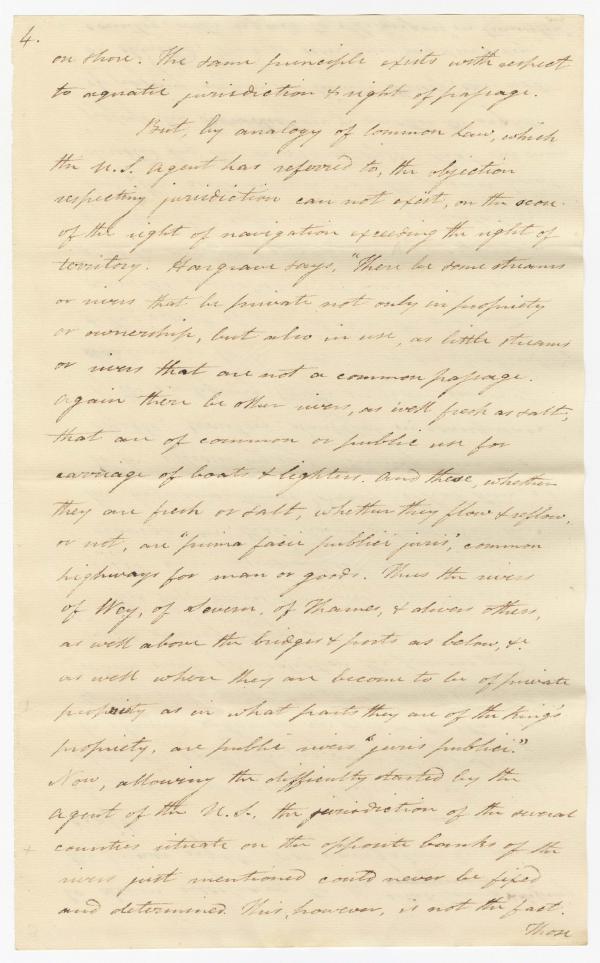 4.
on shore. The same principle exists with respect
to aquatic jurisdiction & right of passage.
But, by analogy of Common Law, which
the U.S. Agent has referred to, the objection
respecting jurisdiction can not exist, on the score
of the right of navigation exceeding the right of
territory. Hargrave says, "There be some streams
or rivers that be private not only in propriety
or ownership, but also in use, as little streams
or rivers that are not a common passage.
Again there be other rivers, as well fresh as salt,
that are of common or public use for
carriage of boats & lighters. And these, whether
they are fresh or salt, whether they flow & reflow,
or not, are "prima facie publici juris", common
highways for man or goods. Thus the rivers
of Wey, of Severn, of Thames, & divers others,
as well above the bridges & ports as below, &c
as well where they are become to be of private
propriety as in what parts they are of the King's
propriety, are public rivers "juris publici."
Now, allowing the difficulty started by the
Agent of the U.S. the jurisdiction of the several
counties situate on the opposite banks of the
rivers just mentioned could never be fixed
and determined. This, however, is not the fact.
Those